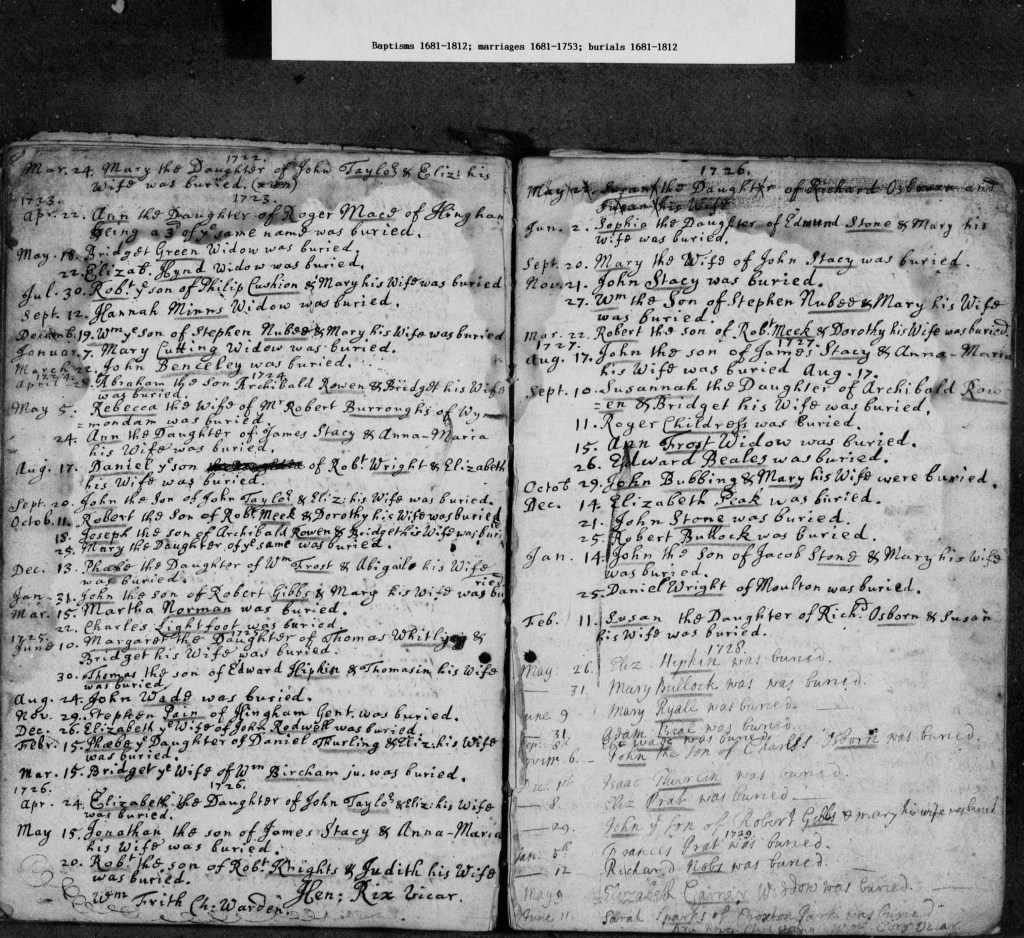 Baptisms 1681-1812; marriages 1681-1753; burials 1681-1812
1722.
Mar. 24. Mary the Daughter of John Taylor & Eliz: his
Wife was buried.
1723. 1723.
Apr. 22. Ann the Daughter of Roger Mace of Hingham
being a 3d of ye same name was buried.
May. 18. Bridget Green Widow was buried.
22. Elizab. Hynd Widow was buried.
Jul. 30. Robt ye son of Philip Cushion & Mary his Wife was buried
Sept. 12. Hannah Minns Widow was buried.
Decemb. 19. Wm ye son of Stephen Nubee & Mary his Wife was buried
Januar. 7. Mary Cutting Widow was buried.
March 22. John Benceley was buried.
1724. 1724.
April 28. Abraham the son Archibald Rowen & Bridget his Wife
was buried.
May 5. Rebecca the Wife of Mr Robert Burroughs of Wym
=mondam was buried.
24. Ann the Daughter of James Stacy & Anna-Maria
his Wife was buried.
Aug. 17. Daniel ye son of Robt Wright & Elizabeth
his Wife was buried.
Sept. 20. John the Son of John Taylor & Eliz: his Wife was buried.
Octob. 11. Robert the Son of Robt Meek & Dorothy his Wife was buried
18. Joseph the son of Archibald Rowen & Bridget his Wife was buri
25. Mary the Daughter of ye same was buried.
Dec. 13. Phæbe the Daughter of Wm Frost & Abigail his Wife
was buried.
Jan - 31. John the son of Robert Gibbs & Mary his Wife was bu
ried
Mar. 15. Martha Norman was buried.
22. Charles Lightfoot was buried.
1725. 1725.
June 10. Margaret the Daughter of Thomas Whitlyng &
Bridget his Wife was buried.
30. Thomas the son of Edward Hipkin & Thomasin his Wife
was buried.
Aug. 24. John Wade was buried.
Nov. 29. Stephen Pain of Hingham Gent. was buried.
Dec. 26. Elizabeth ye Wife of John Rodwell was buried
Febr. 15. Phæbe ye Daughter of Daniel Thurling & Eliz: his Wife
was buried.
Mar. 15. Bridget ye Wife of Wm Bircham ju. was buried.
1726. 1726.
Apr. 24. Elizabeth the Daughter of John Taylor & Eliz: his Wife
was buried.
May 15. Jonathan the son of James Stacy & Anna-Maria
his Wife was buried.
20. Robt the son of Robt Knights & Judith his Wife
was buried.
Hen; Rix Vicar.
Wm Frith Ch: Warden
1726.
May 22. Susan the Daughter of Richard Osborn and
Susan his Wife
Jun. 2. Sophie the Daughter of Edmund Stone & Mary his
wife was buried.
Sept. 20. Mary the Wife of John Stacy was buried.
Nov. 21. John Stacy was buried.
27. Wm the Son of Stephen Nubee & Mary his Wife
was buried.
Mar. 22. Robert the son of Robt Meek & Dorothy his Wife was buried.
1727. 1727.
Aug. 17. John the son of James Stacy & Anna-Maria
his Wife was buried Aug. 17.
Sept. 10. Susannah the Daughter of Archibald Row
=en & Bridget his Wife was buried.
11. Roger Childress was buried.
15. Ann Frost Widow was buried.
26. Edward Beales was buried.
Octob 29. John Bubbing & Mary his Wife were buried.
Dec. 14. Elizabeth Peak was buried.
21. John Stone was buried.
25. Robert Bullock was buried.
Jan. 14. John the Son of Jacob Stone & Mary his Wife
was buried.
25. Daniel Wright of Moulton was buried.
Feb. 11. Susan the Daughter of Richd Osborn & Susan
his Wife was buried.
1728.
May. 26. Eliz Hipkin was buried.
31. Mary Bullock was was buried.
June 9 Mary Ryall was buried.
31. Adam was buried.
was buried.
6. John the Son of Charles Osborn was buried.
Dec. Isaac Thurlin was buried.
8. Eliz Prat was buried
29. John ye son of Robert Gibbs & mary his wife was buried
1729.
Jan. 5th Frances Prat was buried.
12 Richard Nobs was buried.
May 9 Elizabeth Widdow was buried.
June 11. Sarah Sparks of Croxton Park was buried
Vicar